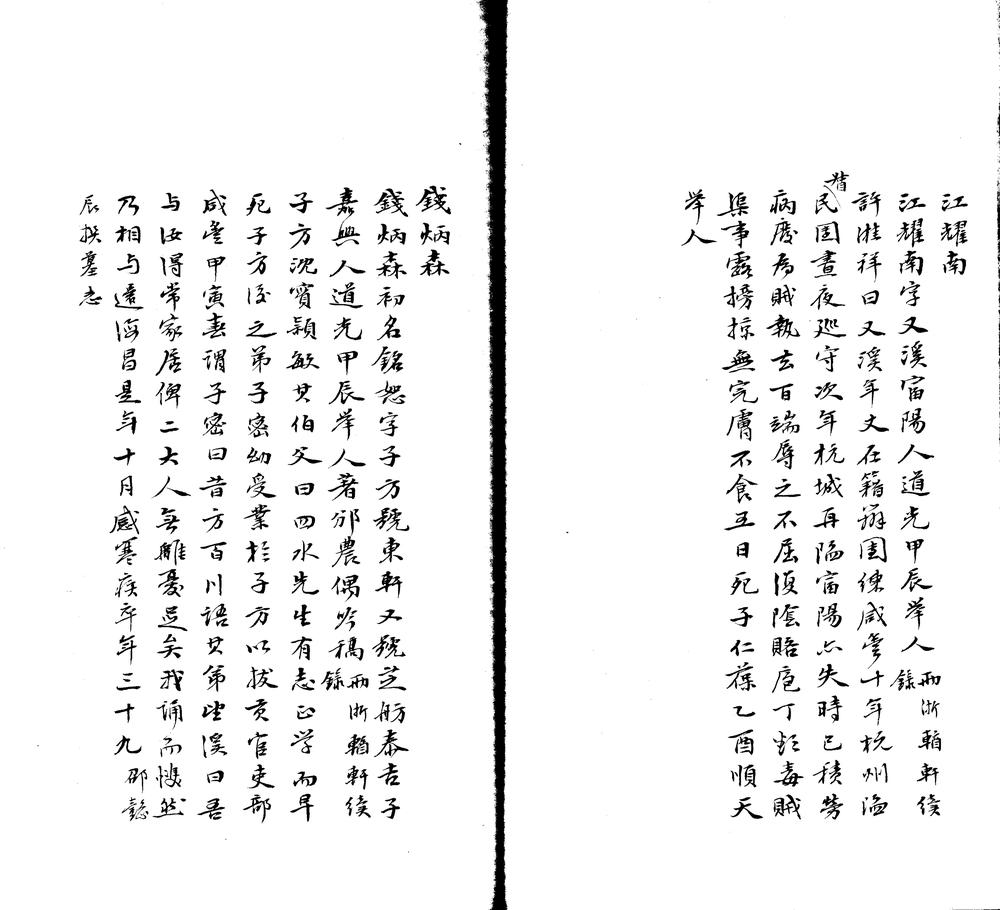 江耀南
江耀南字又溪富陽人道光甲辰举人兩浙輶軒續錄
許淮祥曰又溪年丈在籍辦團練咸豐十年杭州淪
民团晝夜巡守次年杭城再陷富陽亦失時已積勞
病廢为賊執去百端辱之不屈復陰賂庖丁毒賊
渠事露搒掠無完膚不食五日死子仁葆乙酉順天
举人
錢炳森
錢炳森初名銘恕字子方號東軒又號芝舫泰吉子
嘉興人道光甲辰举人著邠農偶吟稿兩浙輶軒續錄
子方沈實穎敏其伯父曰四水先生有志正学而早
死子方從之弟子密幼受業於子方以拔贡官吏部
咸豐甲寅春謂子密曰昔方百川語其弟望溪曰吾
与汝得常家居俾二大人無離憂足矣我誦而愀然
乃相与還海昌是年十月感寒疾卒年三十九邵懿
辰撰墓志